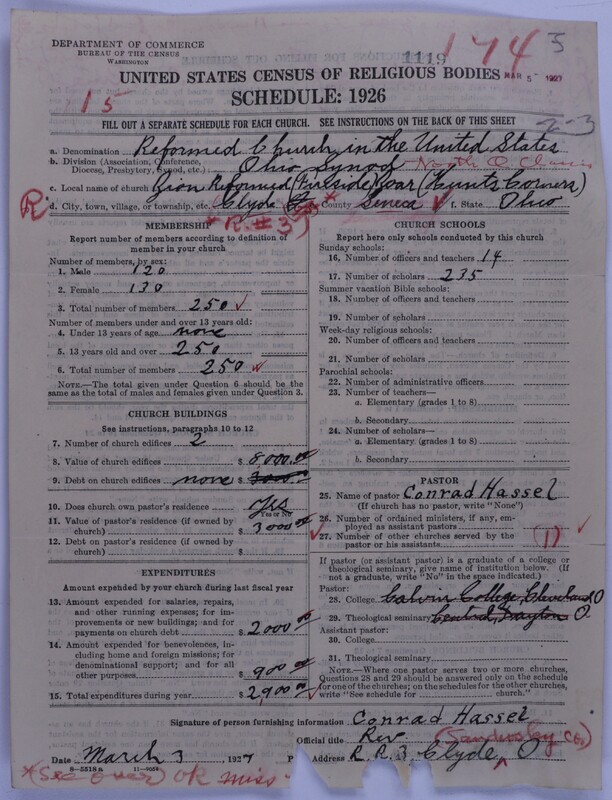 DEPARTMENT OF COMMERCE
BUREAU OF THE CENSUS
WASHINGTON
1119
174
3
MAR 5 1927
UNITED STATES CENSUS OF RELIGIOUS BODIES
SCHEDULE: 1926
15
FILL OUT A SEPARATE SCHEDULE FOR EACH CHURCH. SEE INSTRUCTIONS ON THE BACK OF THIS SHEET
2-3
a. Denomination Reformed Church in the United States
b. Division (Association, Conference, Diocese, Presbytery, Synod, etc.) Ohio Synod North O Classis
c. Local name of church Zion Reformed (Hunts Corners)
R d. City, town, village, or township, etc. Clyde County Seneca f. State Ohio
* R. # 3
MEMBERSHIP
Report number of members according to definition of
member in your church
Number of members, by sex:
1. Male 120
2. Female 130
3. Total number of members 250
Number of members under and over 13 years old:
4. Under 13 years of age none
5. 13 years old and over 250
6. Total number of members 250
NOTE.—The total given under Question 6 should be the
same as the total of males and females given under Question 3.
CHURCH BUILDINGS
See instructions, paragraphs 10 to 12
7. Number of church edifices 2
8. Value of church edifices $ 8000.00
9. Debt on church edifices none $
10. Does church own pastor's residence Yes
Yes or No
11. Value of pastor's residence (if owned by
church) $ 3000.00
12. Debt on pastor's residence (if owned by
church) $
EXPENDITURES
Amount expended by your church during last fiscal year
13. Amount expended for salaries, repairs,
and other running expenses; for im-
provements or new buildings; and for
payments on church debt $ 2000.00
14. Amount expended for benevolences, in-
cluding home and foreign missions; for
denominational support; and for all
other purposes $ 900.00
15. Total expenditures during year $ 2900.00
CHURCH SCHOOLS
Report here only schools conducted by this church
Sunday schools:
16. Number of officers and teachers 14
17. Number of scholars 235
Summer vacation Bible schools:
18. Number of officers and teachers
19. Number of scholars
Week-day religious schools:
20. Number of officers and teachers
21. Number of scholars
Parochial schools:
22. Number of administrative officers
23. Number of teachers—
a. Elementary (grades 1 to 8)
b. Secondary
24. Number of scholars—
a. Elementary (grades 1 to 8)
b. Secondary
PASTOR
25. Name of pastor Conrad Hassel
(If church has no pastor, write "None")
26. Number of ordained ministers, if any, em-
ployed as assistant pastors
27. Number of other churches served by the
pastor or his assistants (1)
If pastor (or assistant pastor) is a graduate of a college or
theological seminary, give name of institution below. (If
not a graduate, write "No" in the space indicated.)
Pastor:
28. College Calvin College Cleveland O
29. Theological seminary Central Dayton O.
Assistant pastor:
30. College
31. Theological seminary
NOTE.—Where one pastor serves two or more churches,
Questions 28 and 29 should be answered only on the schedule
for one of the churches; on the schedules for the other churches,
write "See schedule for church."
Signature of person furnishing information Conrad Hassel
Official title Rev. (Sandusky Co)
Date March 3 1927 P Address R.R. 3, Clyde, O
*(See over) OK miss.
8—5518a 11—9084